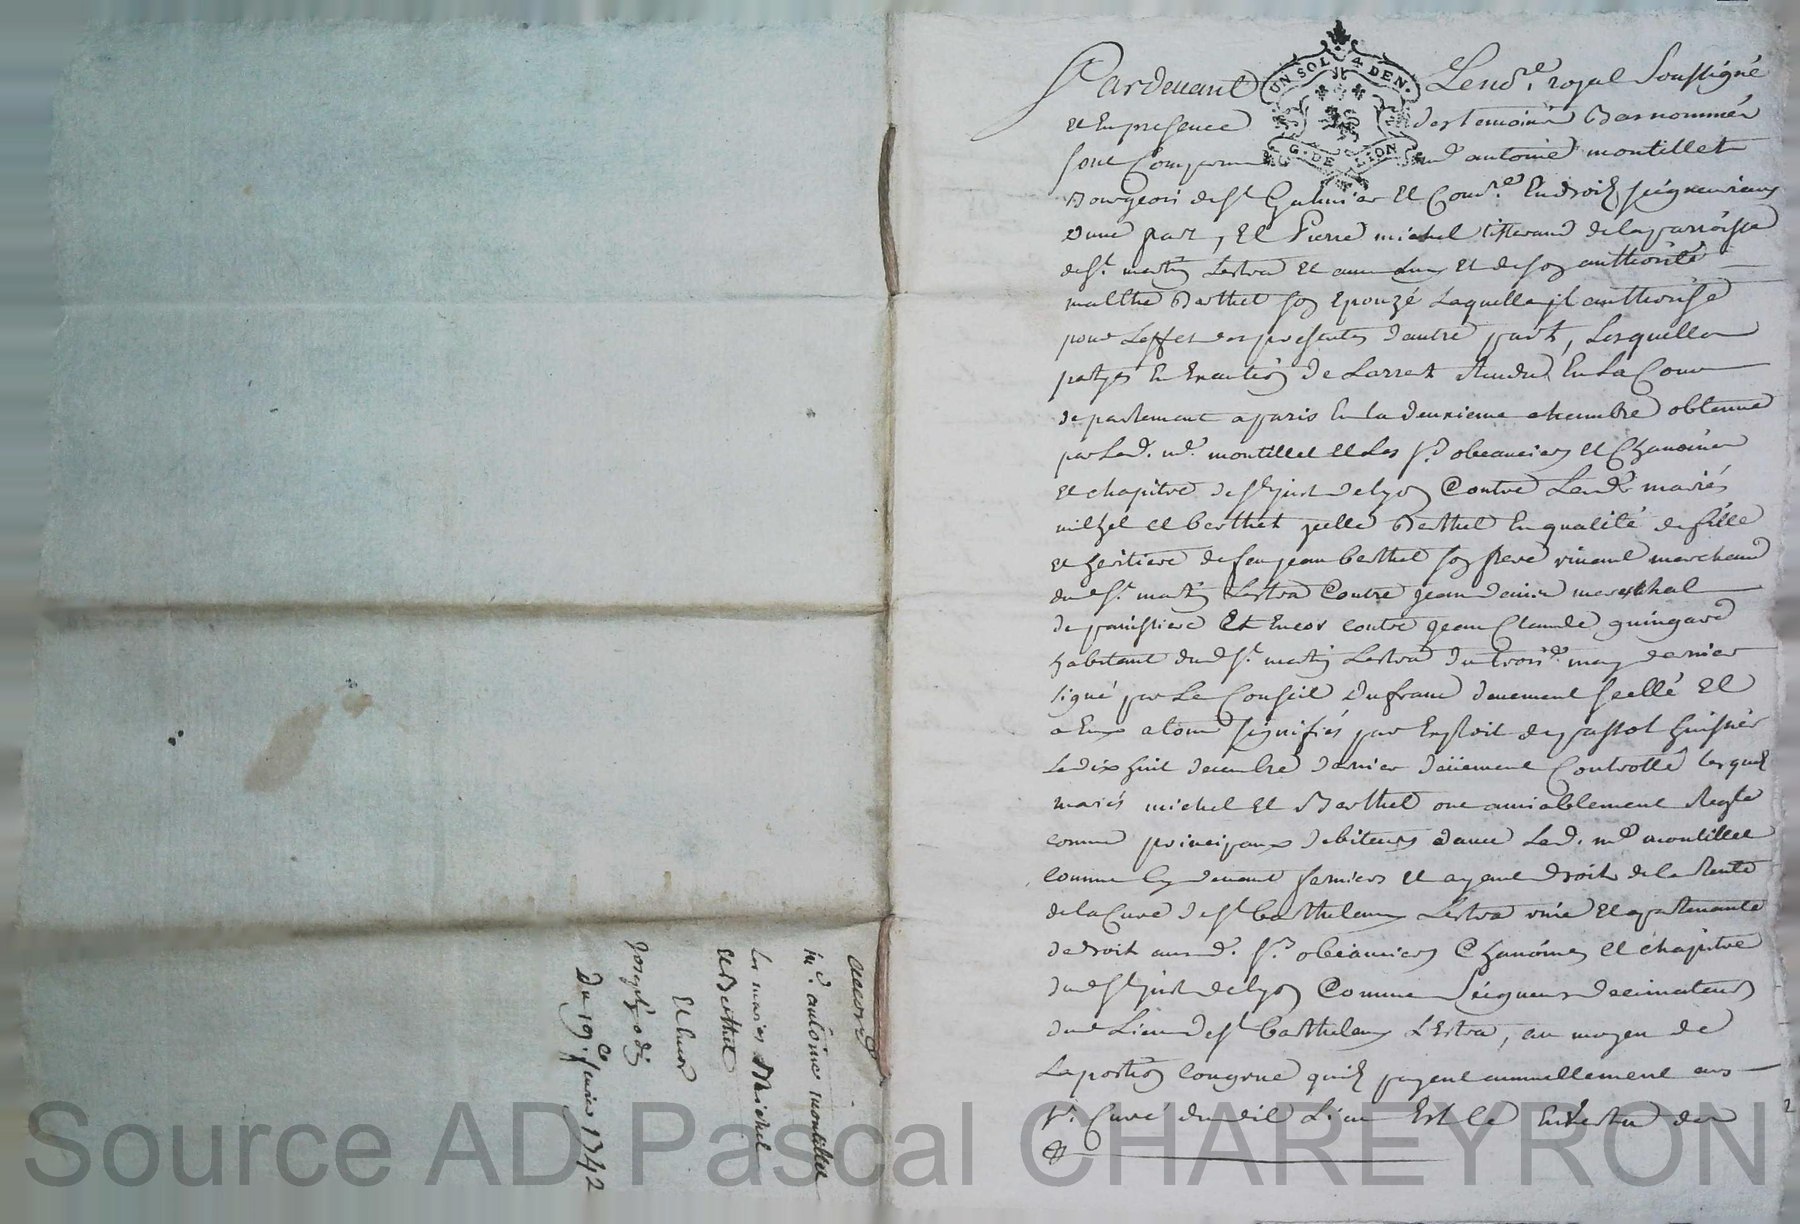 accord
me. antoine montillet
les mariés Michel
et Berthet
et lieur
Joseph
Du 19e janvier 1742
UN SOL 4 DEN.
G. DE LION
Pardevant Le nore. royal soussigné
et en presence des temoins bas nommés
sont comparus md antoine montillet
Bourgeois de st Galmier et comre. en droits seigneuriaux
dune part, et Pierre michel tisserand de la parroisse
de st. martin Lestra et avec luy et de son authorité
malthe Berthet son epouze laquelle il authorise
pour leffet des presentes dautre part, lesquelles
partyes en execution de Larrest rendu en la Cour
de parlement a paris en la deuxieme chambre obtenue
par led. md. montillet et les srs obeanciers et chanoines
et chapitre de st just de lyon contre lesds mariés
michel et berthet icelle Berthet en qualité de fille
et heritiere de feu jean berthet son pere vivant marchand
dud st. martin Lestra contre jean mareschal
de panissiere et encor contre jean Claude guingard
habitant dud st. martin Lestra du trois may dernier
signé par Le Conseil Dufranc deuement scellé et
a eux a tous signifiés par exploit de passot huissier
Le dix huit decembre dernier deüement controllé lesquels
mariés michel et Berthet ont amiablement reglé
comme principaux debiteurs avec led. md montillet
comme cy devant fermier et ayant droit de la rente
de la Cure de st barthelemy Lestra unie et apartenante
de droit ausd. srs obeanciers chanoines et chapitre
dud st just de lyon comme seigneurs decimateurs
dud Lieu de st barthelemy Lestra, au moyen de
la portion congrue quils payent annuellement aux
sr. Curé dudit Lieu est le en vertu des
2
Source AD Pascal CHAREYRON